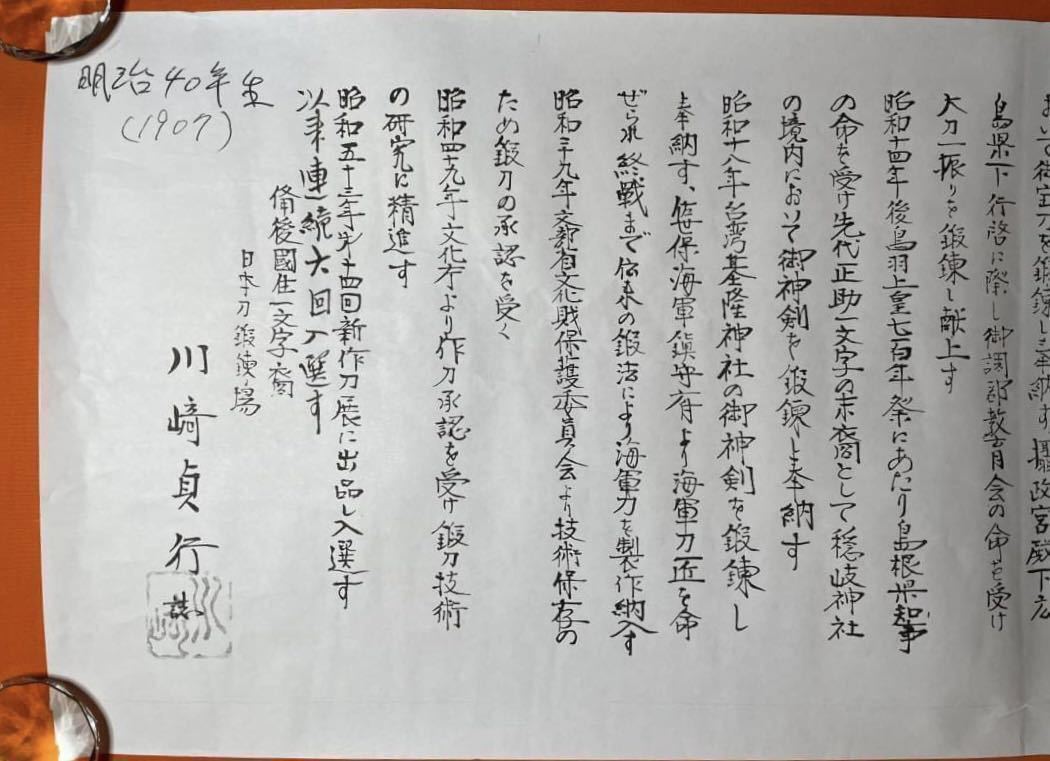 おいて御宝刀を鍛錬し奉納す 摂政宮殿下広
島県下行啓に際し御調郡教育会の命を受け
大刀一振りを鍛錬し献上す
昭和十四年後鳥羽上皇七百年祭にあたり島根県知事
の命を受け先代正助一文字の末裔として隠岐神社
の境内において御神剣を鍛錬し奉納す
昭和十八年台湾基隆神社の御神剣を鍛錬し
奉納す、佐世保海軍鎮守府より海軍刀匠を命
ぜられ終戦まで伝来の鍛法により海軍刀を製作納入す
昭和三十九年文部省文化財保護委員会より技術保存の
ため鍛刀の承認を受く
昭和四十九年文化庁より作刀承認を受け鍛刀技術
の研究に精進す
昭和五十三年第十四回新作刀展に出品し入選す
以来連続六回入選す
備後國住一文字裔
日本刀鍛錬場
川﨑貞行
誌
明治40年生
(1907)